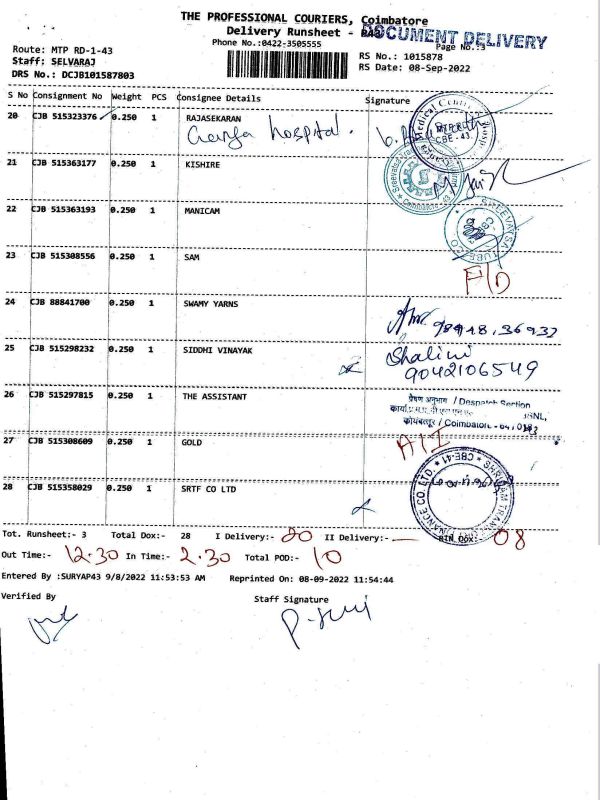 THE PROFESSIONAL COURIERS, Coimbatore
Delivery Runsheet - P43
DOCUMENT DELIVERY
Phone No.:0422-3505555
Page No.:3
Route: MTP RD-1-43
RS No.: 1015878
Staff: SELVARAJ
RS Date: 08-Sep-2022
DRS No.: DCJB101587803
S No Consignment No Weight PCS Consignee Details Signature
20 CJB 515323376 0.250 1 RAJASEKARAN
Ganga hospital.
21 CJB 515363177 0.250 1 KISHIRE
22 CJB 515363193 0.250 1 MANICAM
SREEVATSA
23 CJB 515308556 0.250 1 SAM
F/D
24 CJB 88841700 0.250 1 SWAMY YARNS
25 CJB 515298232 0.250 1 SIDDHI VINAYAK
Shalini
9042106549
26 CJB 515297815 0.250 1 THE ASSISTANT
प्रेषण अनुभाग / Despatch Section
BSNL,
कोयंबत्तूर / Coimbatore -
27 CJB 515308609 0.250 1 GOLD
A/I
28 CJB 515358029 0.250 1 SRTF CO LTD
SHRIRAM TRANSPORT FINANCE CO LTD. CBE-41
Tot. Runsheet:- 3 Total Dox:- 28 I Delivery:- 20 II Delivery:- — RTN Dox: 08
Out Time:- 12.30 In Time:- 2.30 Total POD:- 10
Entered By :SURYAP43 9/8/2022 11:53:53 AM Reprinted On: 08-09-2022 11:54:44
Verified By Staff Signature